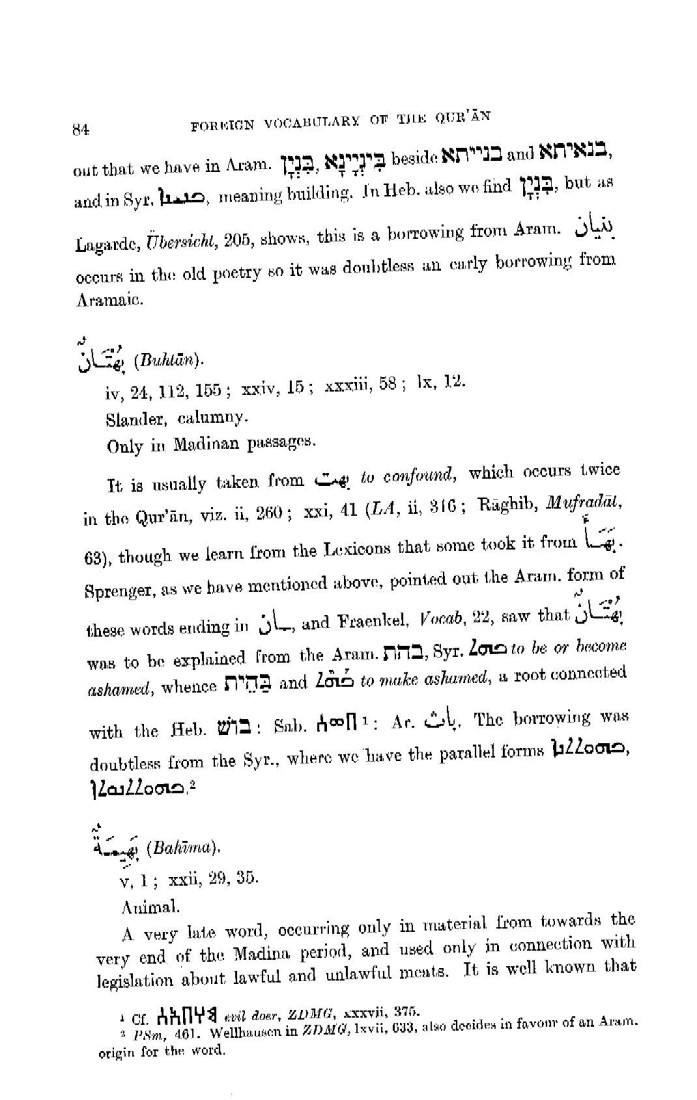 84 FOREIGN VOCABULARY OF THE QUR'ĀN
out that we have in Aram. בִּנְיָן, בִּינְיָינָא beside בנייתא and בנאיתא,
and in Syr. ܒܢܝܢܐ, meaning building. In Heb. also we find בִּנְיָן, but as
Lagarde, Übersicht, 205, shows, this is a borrowing from Aram. بنيان
occurs in the old poetry so it was doubtless an early borrowing from
Aramaic.
بُهْتَانٌ (Buhtān).
iv, 24, 112, 155; xxiv, 15; xxxiii, 58; lx, 12.
Slander, calumny.
Only in Madinan passages.
It is usually taken from بهت to confound, which occurs twice
in the Qur'ān, viz. ii, 260; xxi, 41 (LA, ii, 316; Rāghib, Mufradāt,
63), though we learn from the Lexicons that some took it from
Sprenger, as we have mentioned above, pointed out the Aram. form of
these words ending in ـان, and Fraenkel, Vocab, 22, saw that بُهْتَانٌ
was to be explained from the Aram. בהת, Syr. ܒܗܬ to be or become
ashamed, whence בָּהִית and ܒܗܬ to make ashamed, a root connected
with the Heb. בּוֹשׁ: Sab. 𐩨𐩥𐩻 1: Ar. باث. The borrowing was
doubtless from the Syr., where we have the parallel forms ܒܗܘܬܬܐ,
2
بَهِيمَةٌ (Bahīma).
v, 1; xxii, 29, 35.
Animal.
A very late word, occurring only in material from towards the
very end of the Madina period, and used only in connection with
legislation about lawful and unlawful meats. It is well known that
1 Cf. evil doer, ZDMG, xxxvii, 375.
2 PSm, 461. Wellhausen in ZDMG, lxvii, 633, also decides in favour of an Aram.
origin for the word.